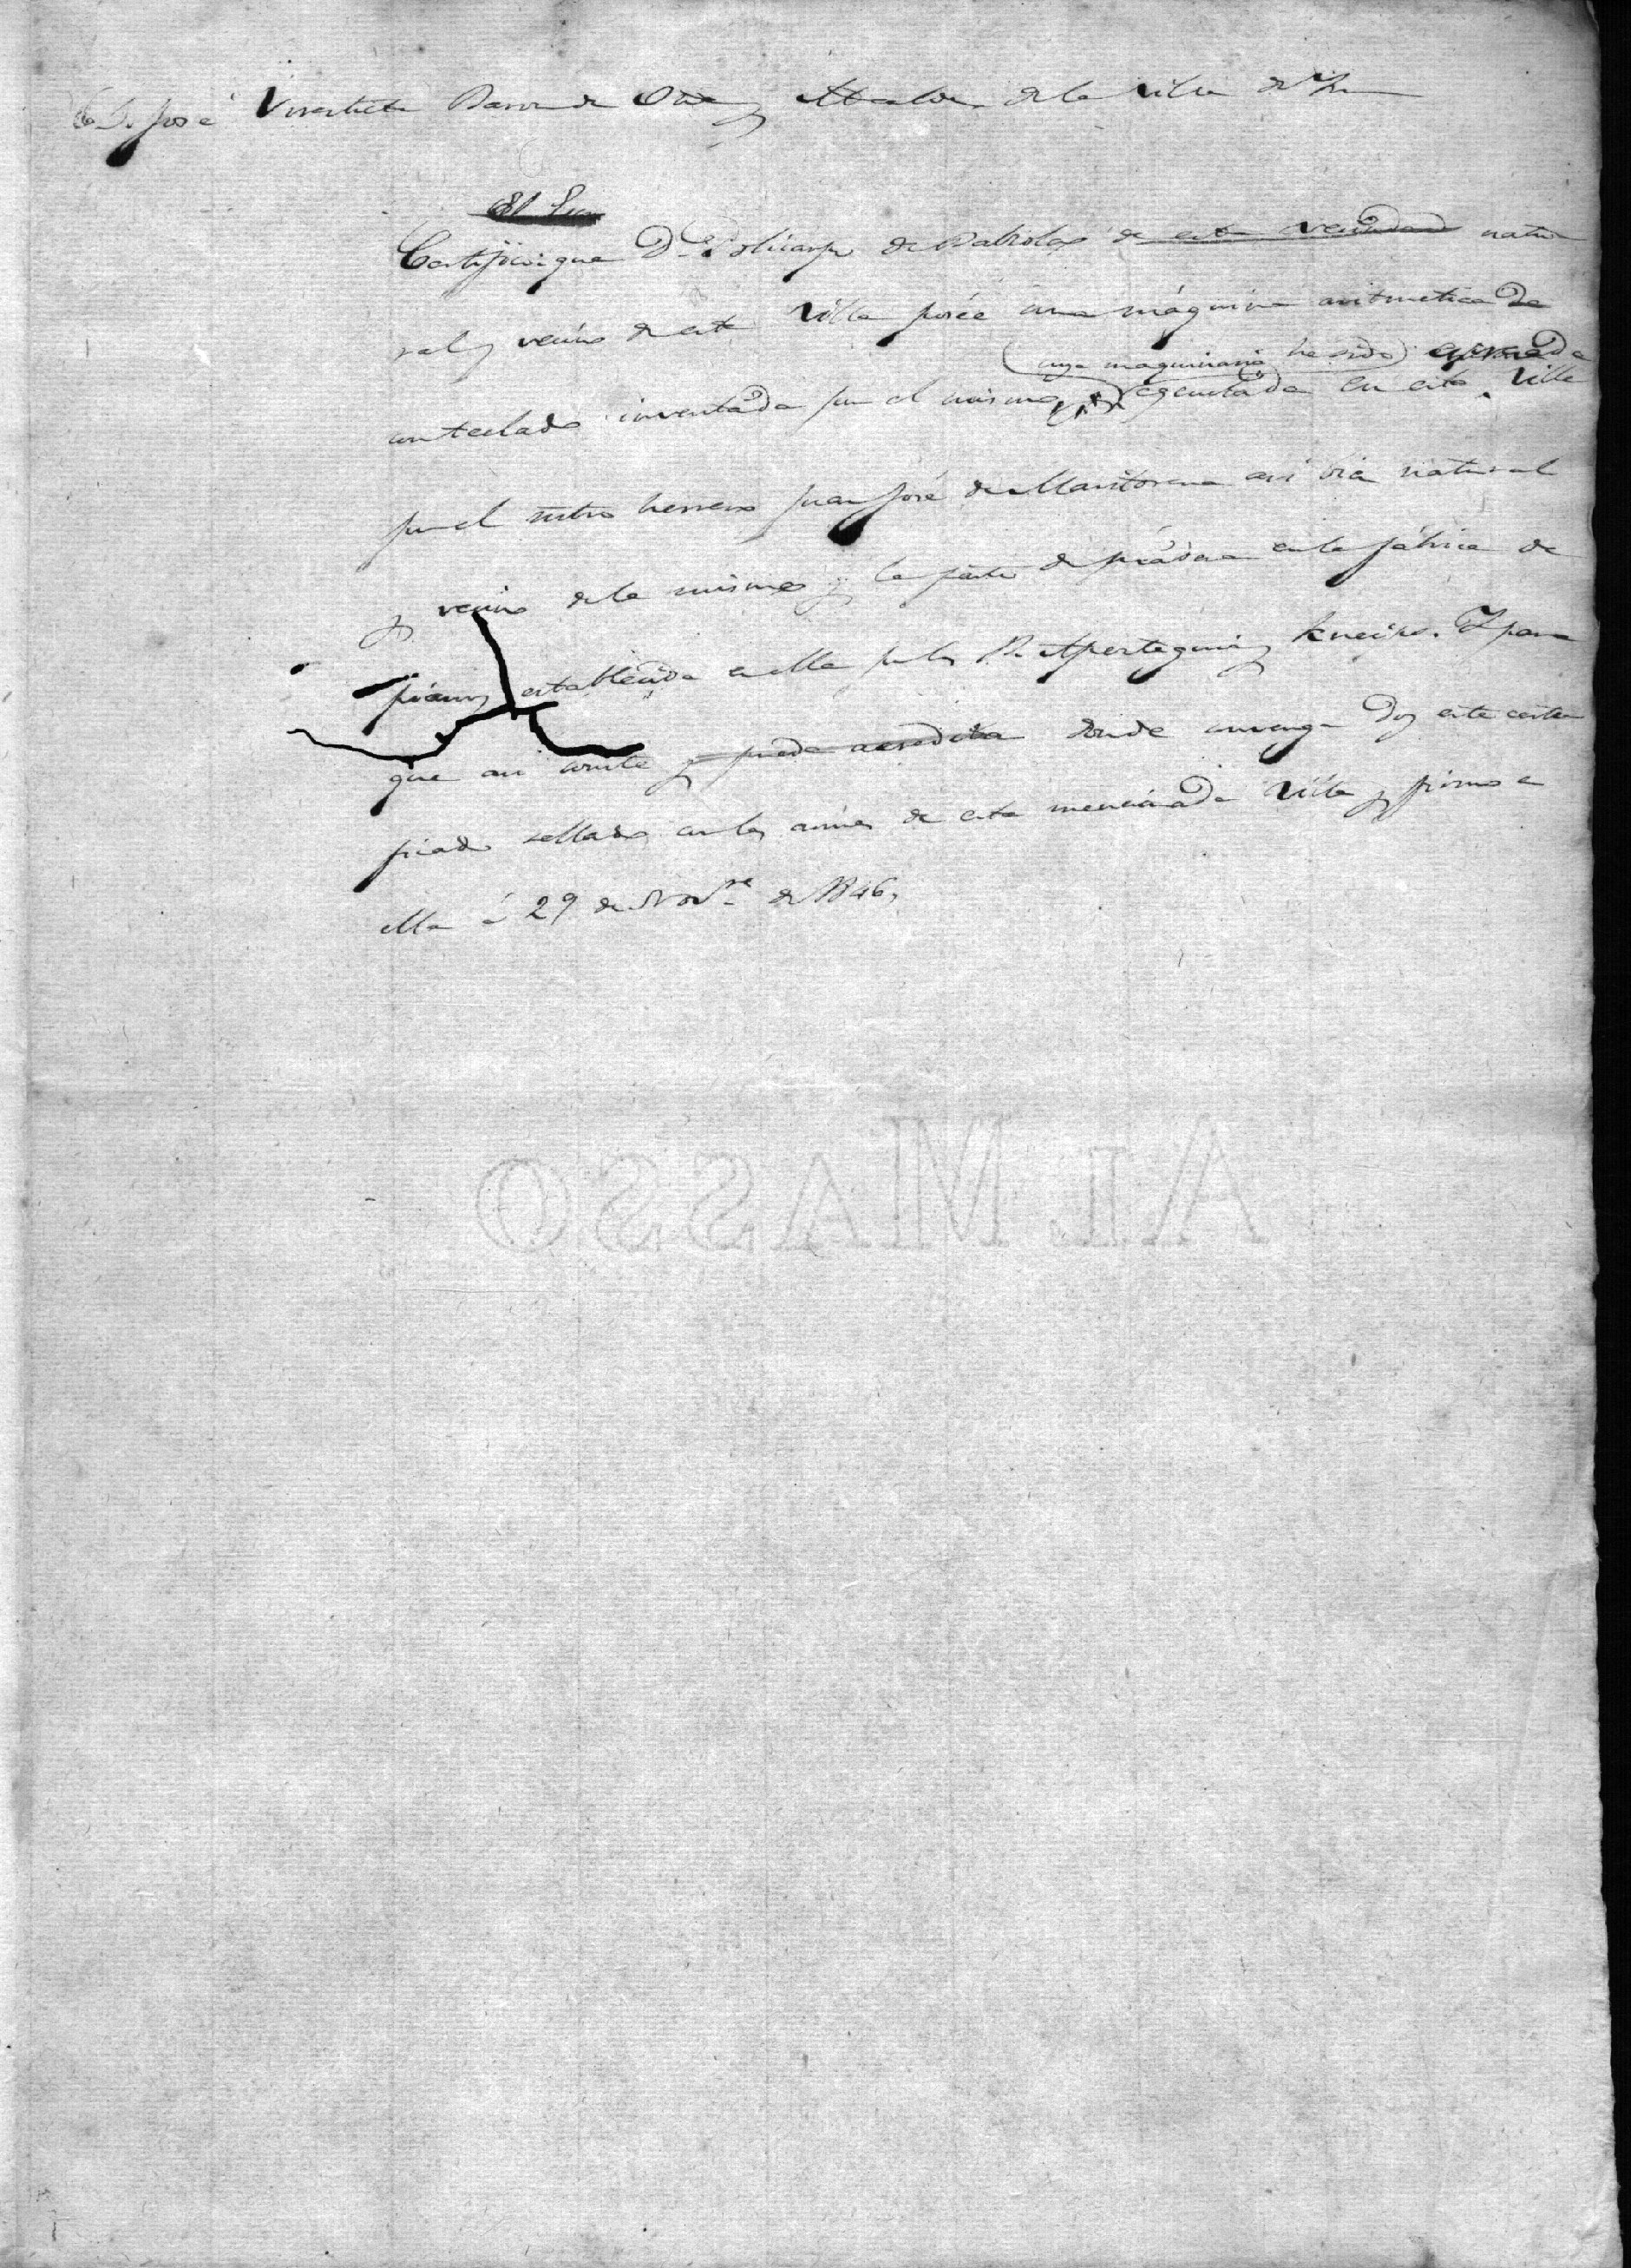 José Barón de Oña y Alcalde de la villa de
El Sr.
Certifico: que Dn. Policarpo de Balzola de esta vecindad natu
ral y vecino de esta Villa posée una máquina aritmetica de
cuya maquinaria ha sido
con teclado inventada por el mismo egecutada en esta Villa
por el mtro herrero Juan José de así bien natural
y vecino de la misma y la parte de madera en la fábrica de
pianos establecida en ella por los Aperteguia y Kneips. Y para
que asi conste y pueda acreditar donde convenga doy este certi
ficado sellado con las armas de esta mencionada Villa y firmo en
ella á 29 de Novre. de 1846,
AL MASSO